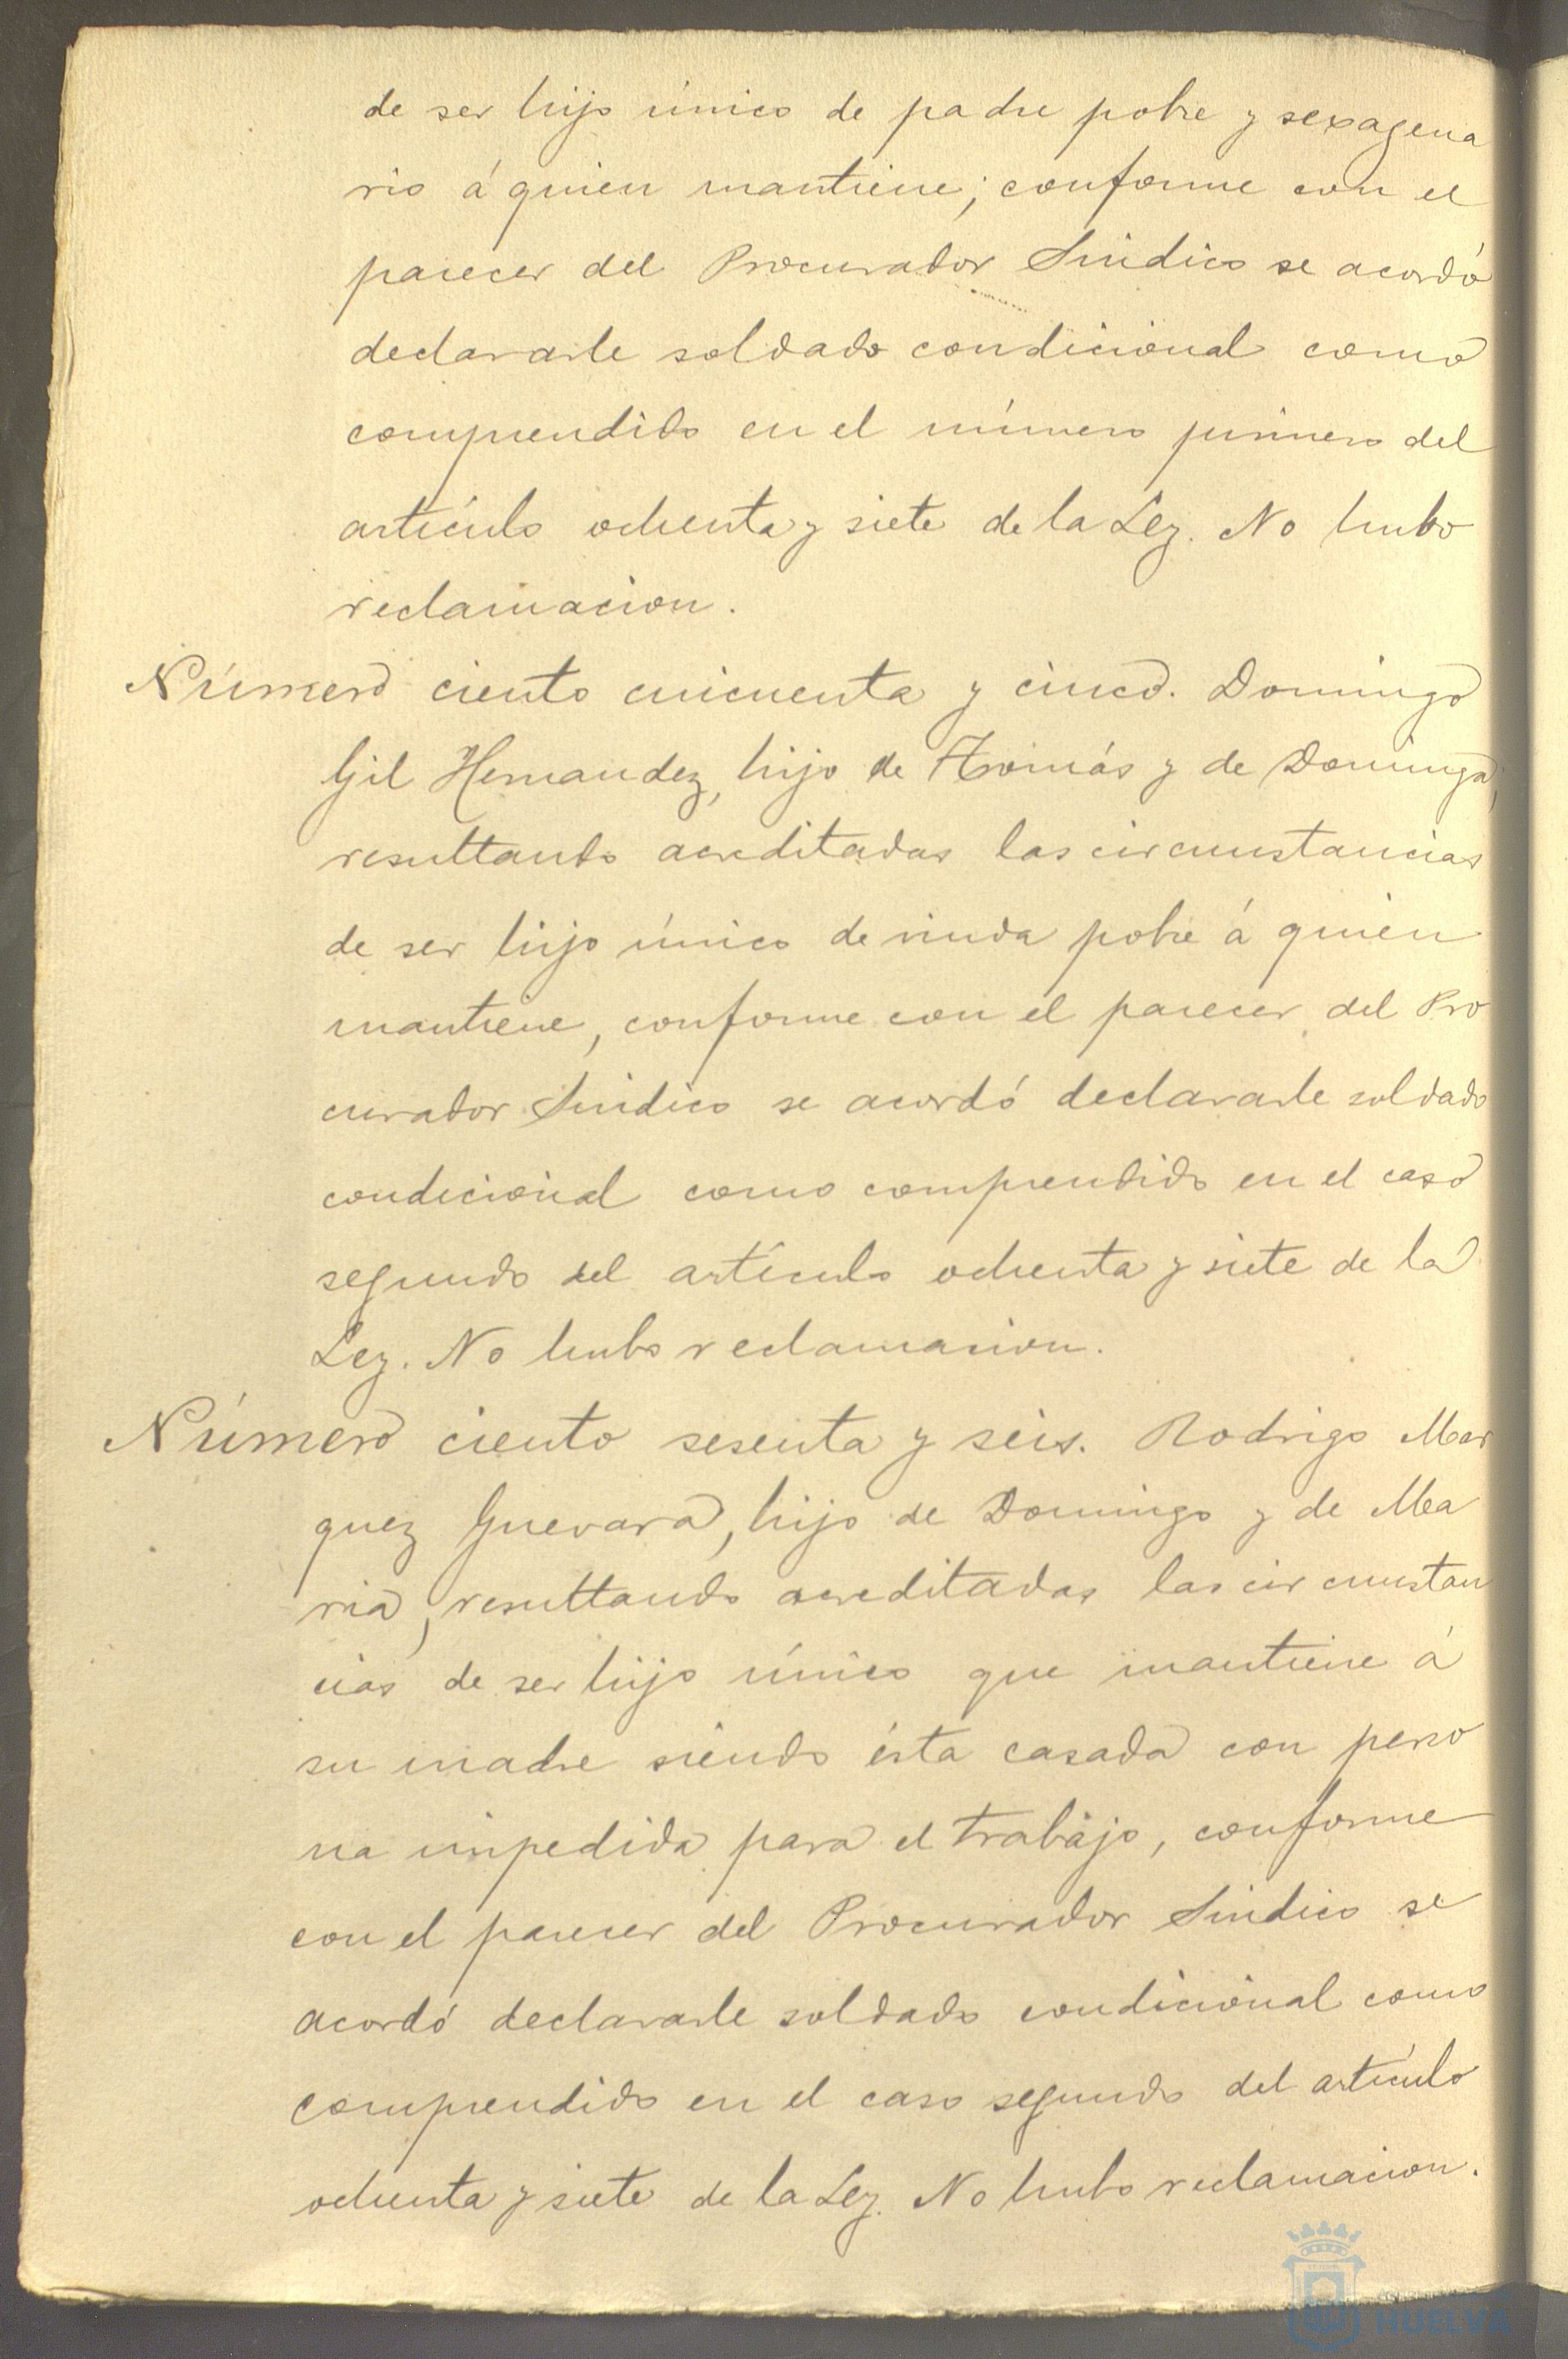 de ser hijo único de padre pobre y sexagena
rio á quien mantiene; conforme con el
parecer del Procurador Sindico se acordó
declararle soldado condicional como
comprendido en el número primero del
artículo ochenta y siete de la Ley. No hubo
reclamacion.
Número ciento cincuenta y cinco. Domingo
Gil Hernandez, hijo de Tomás y de Dominga,
resultando acreditadas las circunstancias
de ser hijo único de viuda pobre á quien
mantiene, conforme con el parecer del Pro
curador Sindico se acordó declararle soldado
condicional como comprendido en el caso
segundo del artículo ochenta y siete de la
Ley. No hubo reclamacion.
Número ciento sesenta y seis. Rodrigo Mar
quez Guevara, hijo de Domingo y de Ma
ria, resultando acreditadas las circunstan
cias de ser hijo único que mantiene á
su madre siendo ésta casada con perso
na impedida para el trabajo, conforme
con el parecer del Procurador Sindico se
acordó declararle soldado condicional como
comprendido en el caso segundo del artículo
ochenta y siete de la Ley. No hubo reclamacion.
HUELVA